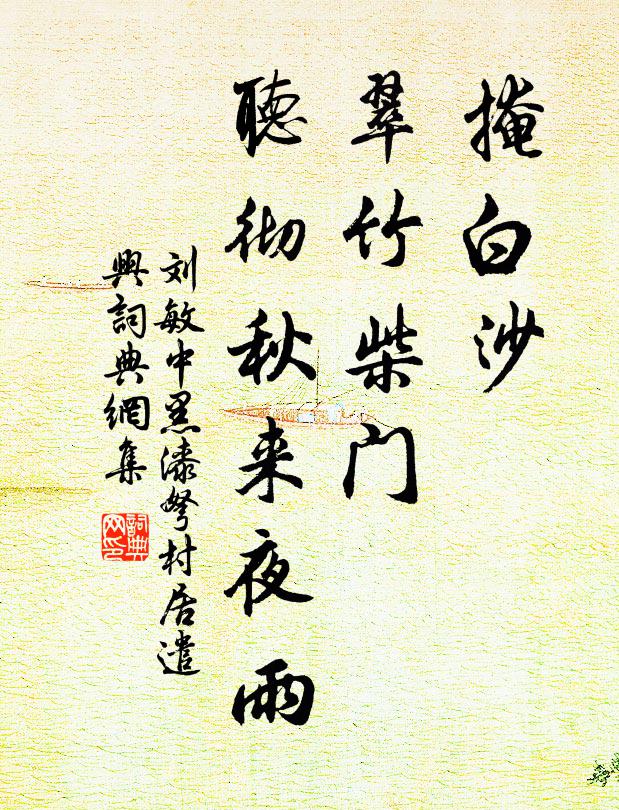 掩白沙
翠竹柴门
聽彻秋来夜雨
刘敏中黑漆弩村居遣
興詞典網集
詞典
网印